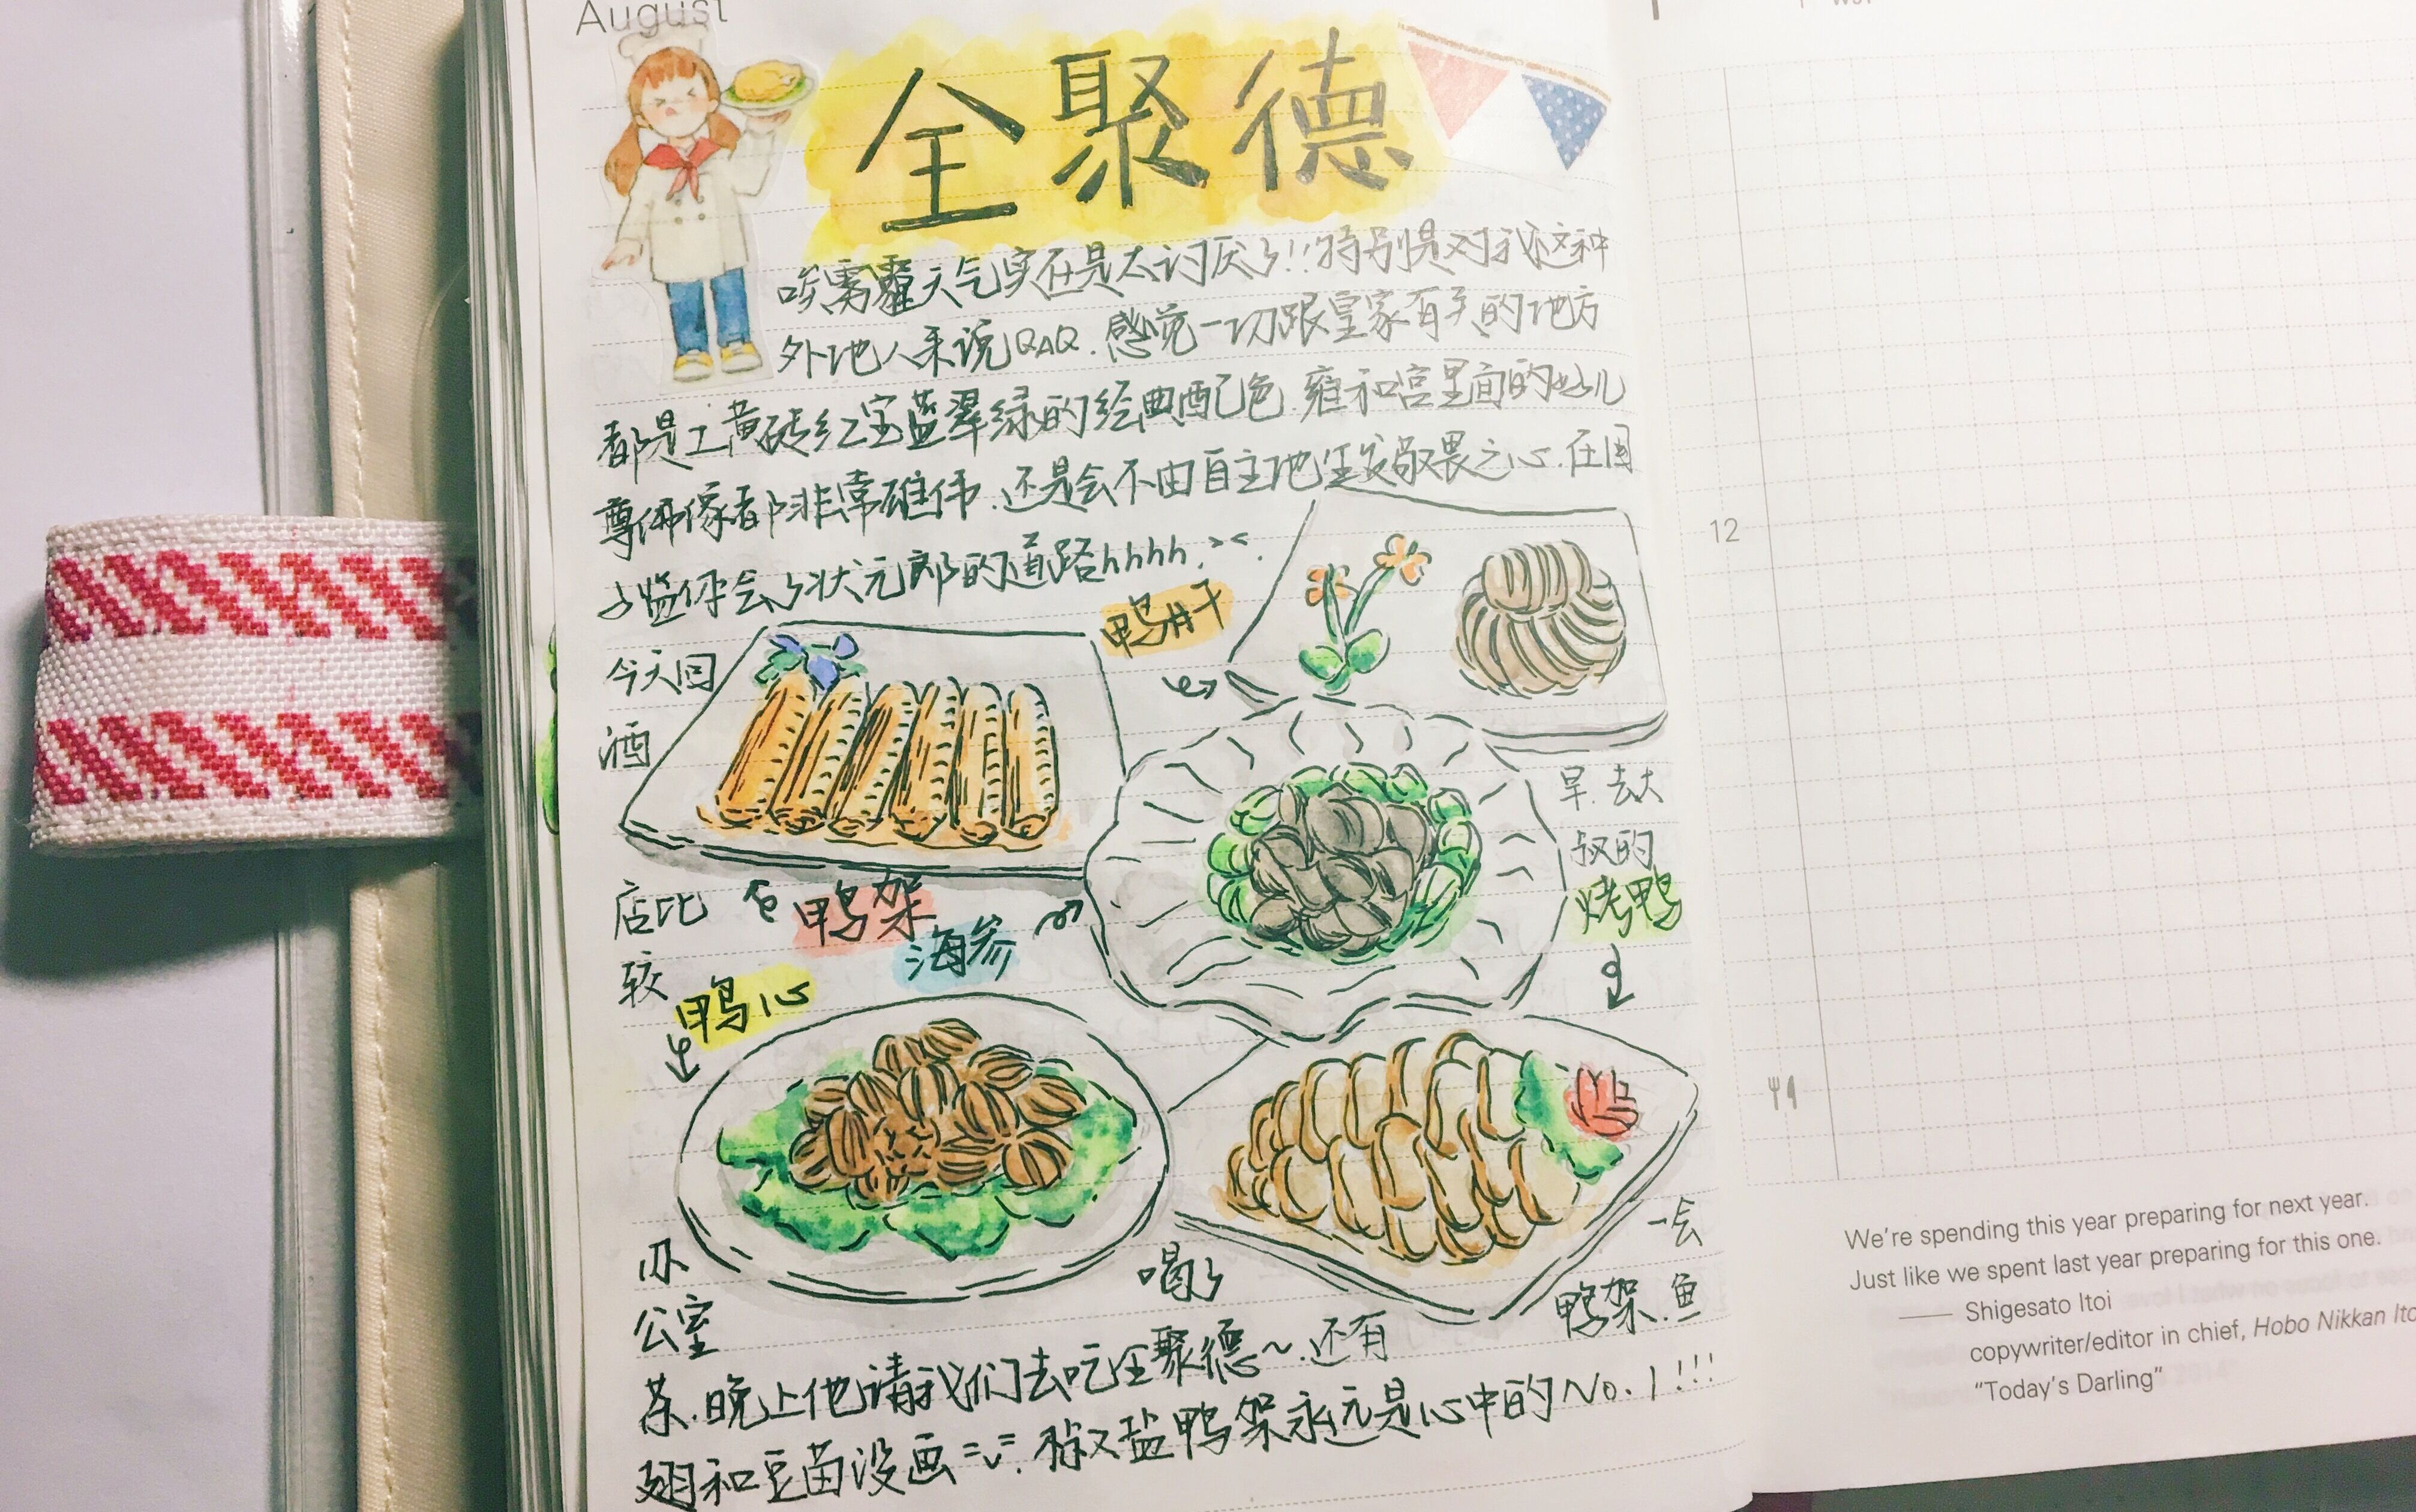 August
全聚德
唉雾霾天气实在是太讨厌了!!特别是对我这种
外地人来说QAQ.感觉一切跟皇家有关的地方
都是土黄砖红宝蓝翠绿的绘典配色.雍和宫里面的
尊佛像都非常雄伟.还是会不由自主地生发敬畏之心.在国
子监体会了状元郎的道路hhhh.><.
鸭肝
今天回
酒
早.去大
叔的
烤鸭
店比
鸭架
海参
较
鸭心
办
一会
公室
喝了
鸭架.鱼
茶.晚上他请我们去吃全聚德~.还有
翅和豆苗没画=v=.椒盐鸭架永远是心中的No.1!!!
12
We're spending this year preparing for next year.
Just like we spent last year preparing for this one.
—— Shigesato Itoi
copywriter/editor in chief, Hobo Nikkan Ito
"Today's Darling"